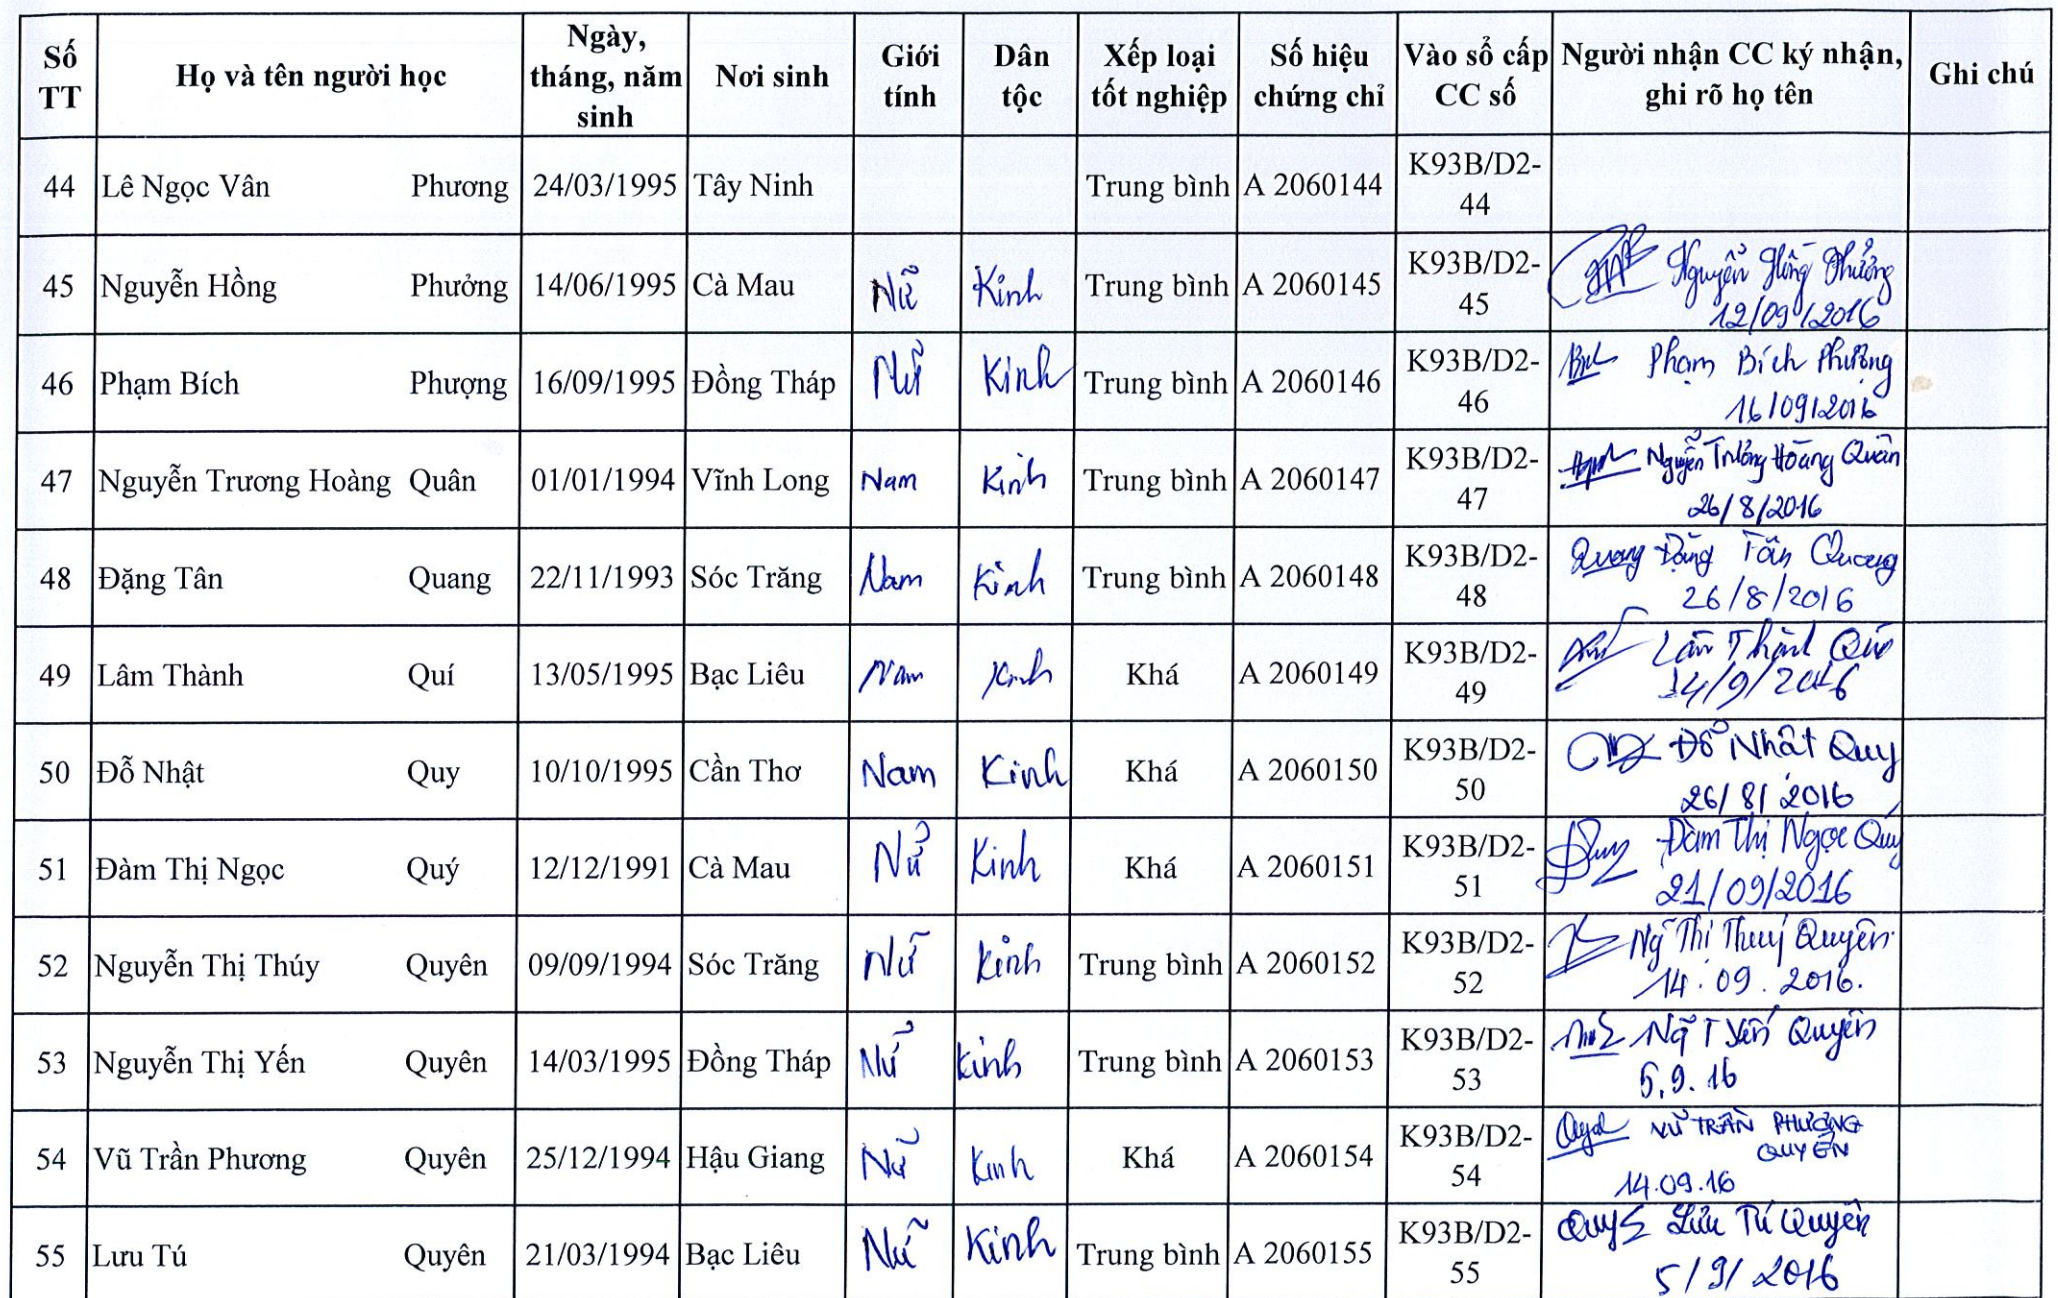 Số TT Họ và tên người học Ngày, tháng, năm sinh Nơi sinh Giới tính Dân tộc Xếp loại tốt nghiệp Số hiệu chứng chỉ Vào sổ cấp CC số Người nhận CC ký nhận, ghi rõ họ tên Ghi chú
44 Lê Ngọc Vân Phương 24/03/1995 Tây Ninh Trung bình A 2060144 K93B/D2-44
45 Nguyễn Hồng Phưởng 14/06/1995 Cà Mau Nữ Kinh Trung bình A 2060145 K93B/D2-45 Nguyễn Hồng Phưởng
12/09/2016
46 Phạm Bích Phượng 16/09/1995 Đồng Tháp Nữ Kinh Trung bình A 2060146 K93B/D2-46 Phạm Bích Phượng
16/09/2016
47 Nguyễn Trương Hoàng Quân 01/01/1994 Vĩnh Long Nam Kinh Trung bình A 2060147 K93B/D2-47 Nguyễn Trương Hoàng Quân
26/8/2016
48 Đặng Tân Quang 22/11/1993 Sóc Trăng Nam Kinh Trung bình A 2060148 K93B/D2-48 Quang Đặng Tân Quang
26/8/2016
49 Lâm Thành Quí 13/05/1995 Bạc Liêu Nam Kinh Khá A 2060149 K93B/D2-49 Lâm Thành Quí
14/9/2016
50 Đỗ Nhật Quy 10/10/1995 Cần Thơ Nam Kinh Khá A 2060150 K93B/D2-50 Đỗ Nhật Quy
26/8/2016
51 Đàm Thị Ngọc Quý 12/12/1991 Cà Mau Nữ Kinh Khá A 2060151 K93B/D2-51 Đàm Thị Ngọc Quý
21/09/2016
52 Nguyễn Thị Thúy Quyên 09/09/1994 Sóc Trăng Nữ Kinh Trung bình A 2060152 K93B/D2-52 Ng̃ Thị Thuý Quyên
14.09.2016.
53 Nguyễn Thị Yến Quyên 14/03/1995 Đồng Tháp Nữ Kinh Trung bình A 2060153 K93B/D2-53 Ng̃ T Yến Quyên
5.9.16
54 Vũ Trần Phương Quyên 25/12/1994 Hậu Giang Nữ Kinh Khá A 2060154 K93B/D2-54 VŨ TRẦN PHƯƠNG
QUYÊN
14.09.16
55 Lưu Tú Quyên 21/03/1994 Bạc Liêu Nữ Kinh Trung bình A 2060155 K93B/D2-55 Lưu Tú Quyên
5/9/2016